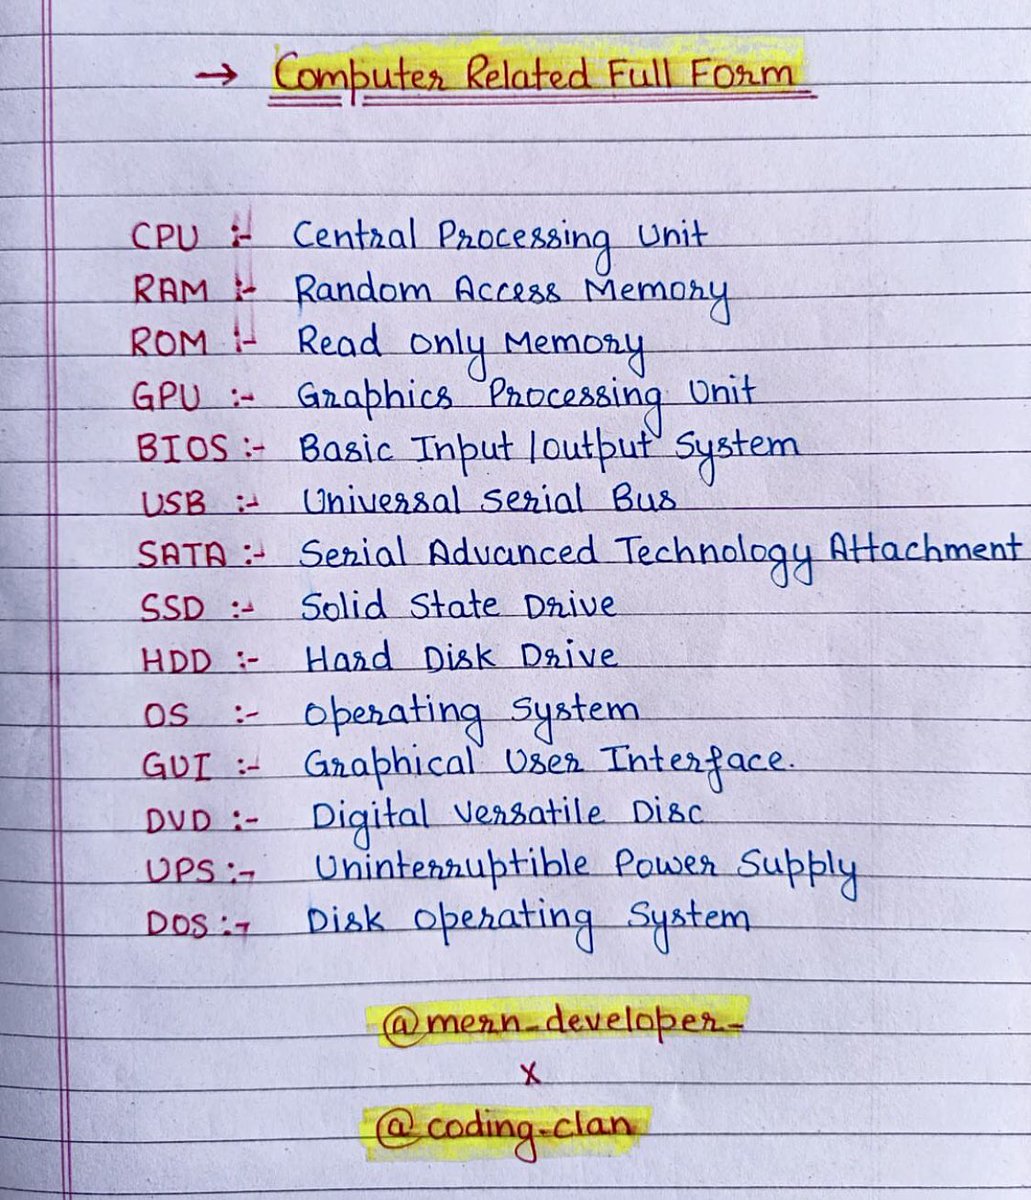 → Computer Related Full Form
CPU :- Central Processing Unit
RAM :- Random Access Memory
ROM :- Read only Memory
GPU :- Graphics Processing Unit
BIOS :- Basic Input/output System
USB :- Universal Serial Bus
SATA :- Serial Advanced Technology Attachment
SSD :- Solid State Drive
HDD :- Hard Disk Drive
OS :- Operating System
GUI :- Graphical User Interface.
DVD :- Digital Versatile Disc
UPS :- Uninterruptible Power Supply
DOS :- Disk Operating System
@mern_developer_
X
@coding_clan